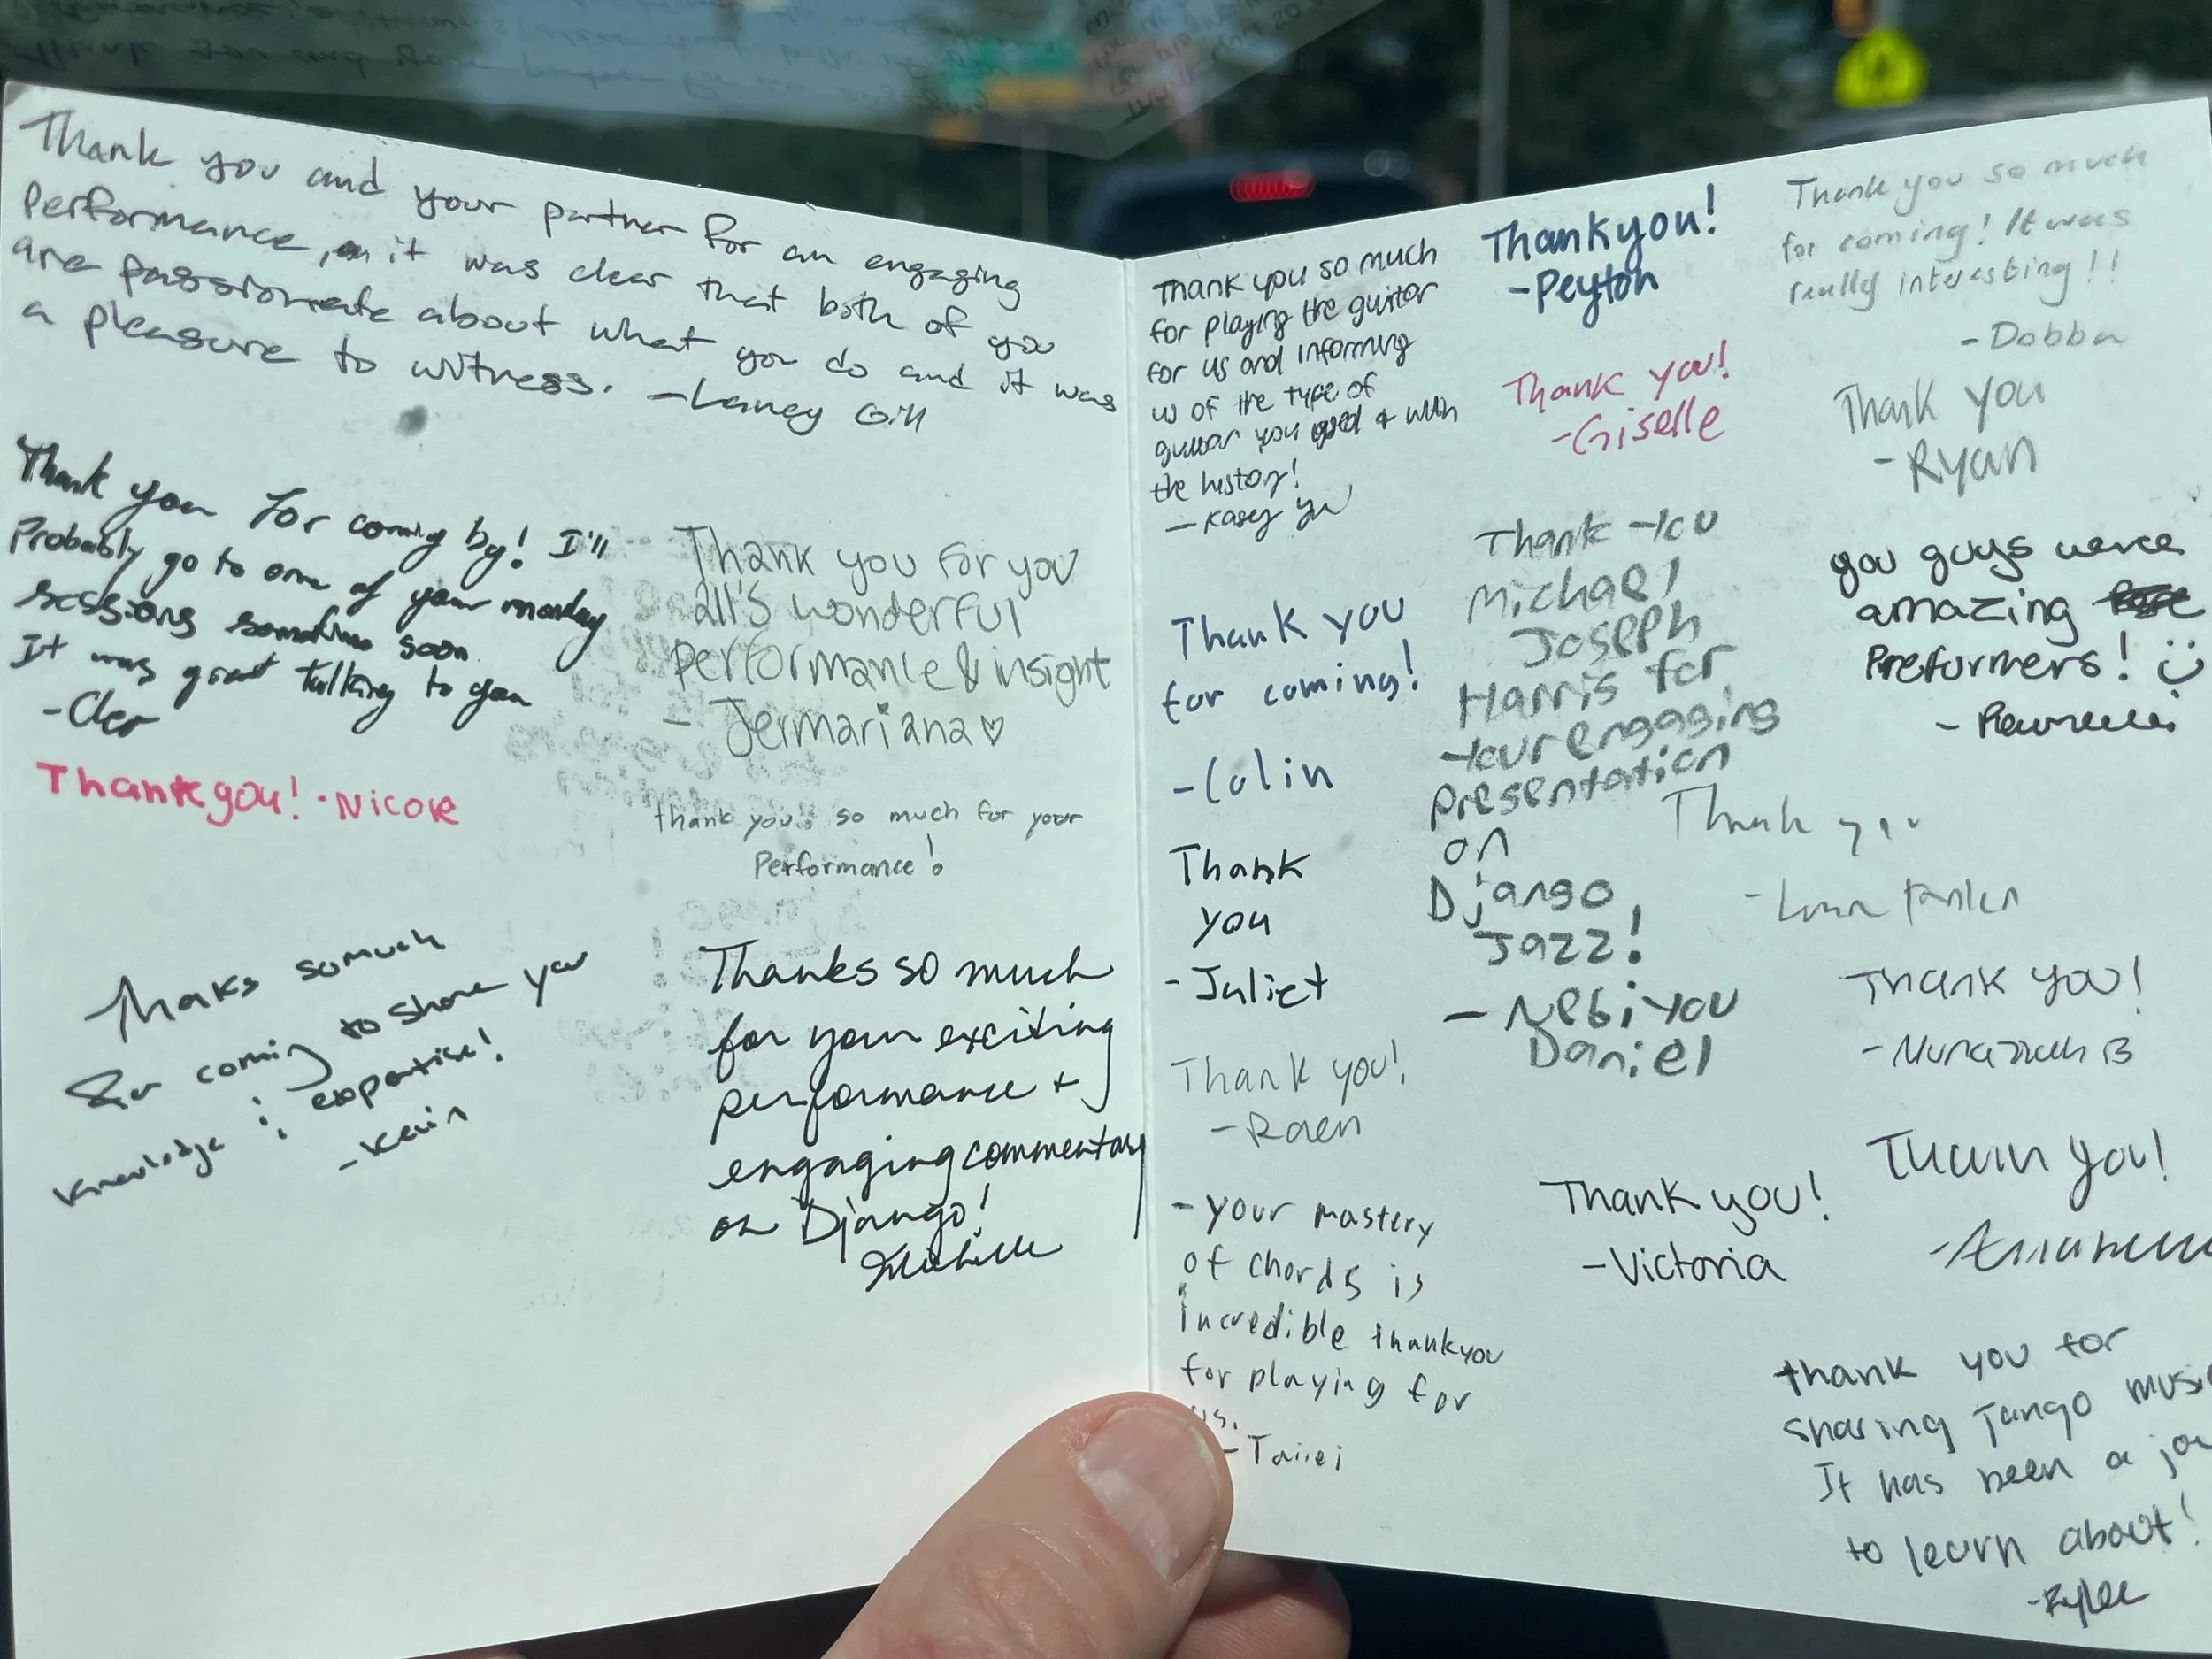 Thank you and your partner for an engaging
performance, it was clear that both of you
are passionate about what you do and it was
a pleasure to witness. -Laney Gill
Thank you for coming by! I'll
Probably go to one of your monday
sessions sometime soon
It was great talking to you
-Cleo
Thank you for you
all's wonderful
performance & insight
- Jermariana ♡
Thank you! · Nicole
thank you!! so much for your
Performance!
Thaks so much
for coming to share your
knowledge & expertise!
-Kevin
Thanks so much
for your exciting
performance +
engaging commentary
on Django!
Michelle
Thank you so much
for playing the guitar
for us and informing
us of the type of
guitar you used & with
the history!
- Kasey Yu
Thank you!
-Peyton
Thank you so much
for coming! It was
really interesting!!
-Dobba
Thank you!
-Giselle
Thank you
-Ryan
Thank you
for coming!
-Colin
Thank You
Michael
Joseph
Harris for
your engaging
Presentation
on
Django
Jazz!
- Nebiyou
Daniel
you guys were
amazing
Preformers! :)
Thank you
-
Thank
you
-Juliet
Thank you!
-
Thank you!
-Raen
Thank you!
-Victoria
you!
-your mastery
of chords is
incredible thankyou
for playing for
us.
thank you for
sharing Jango
It has been a
to learn about!
-Rylee